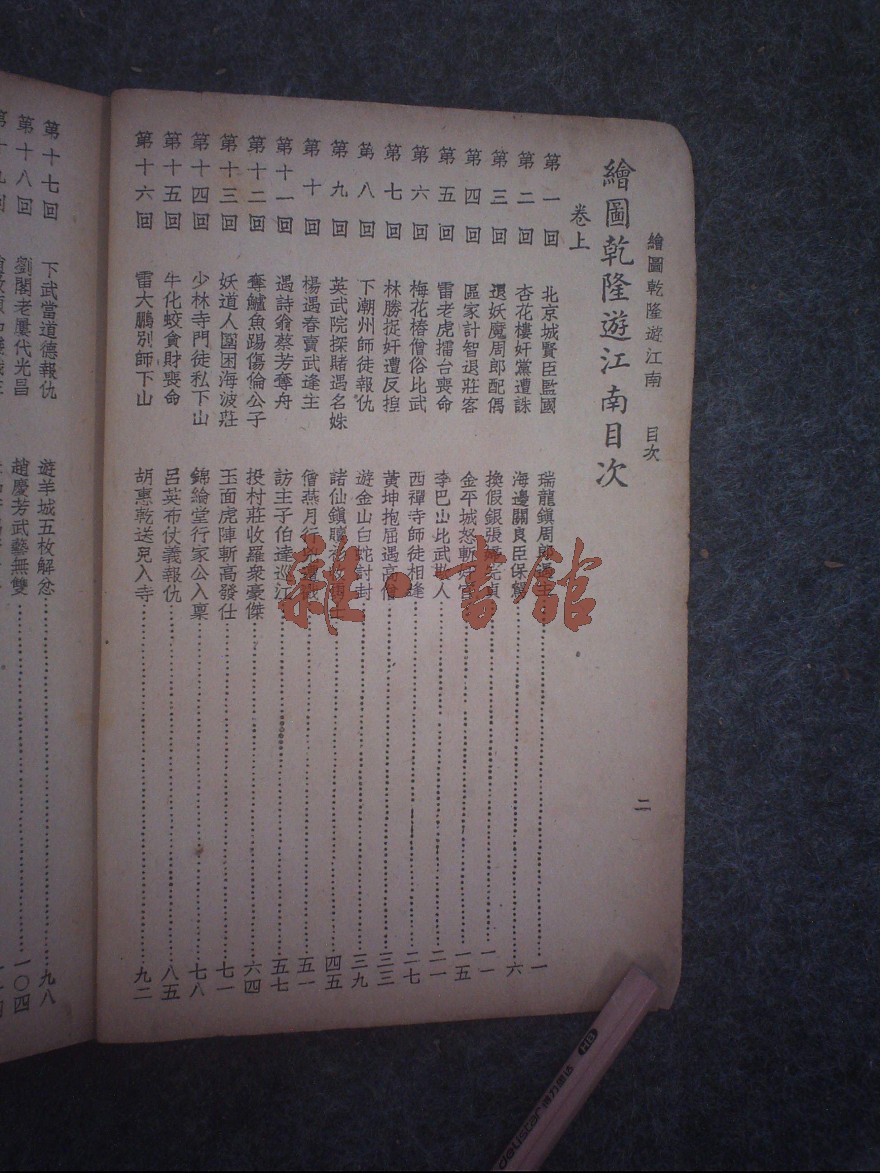 繪圖乾隆遊江南　目次
二
繪圖乾隆遊江南目次
卷上
第一回　北京城賢臣監國　瑞龍鎮周郎遇主……一
第二回　杏花樓奸黨遭誅　海邊關良臣保駕……六
第三回　退妖魔周郎配偶　換假銀張　貞……一一
第四回　區家計智退莊客　金平城怒斬　官……一五
第五回　雷老虎擂台喪命　李巴山比武　人……二一
第六回　梅花樁僧俗比武　西禪寺師徒相逢……二七
第七回　林勝捉奸遭反捏　黃坤抱屈遇高僧……三三
第八回　下潮州師徒報仇　遊金山白蛇討封……三九
第九回　英武院探賭遇名姝　諸仙鎮贖　……四五
第十回　楊遇春賣武逢主　僧燕月　……五一
第十一回　遇詩翁蔡芳奪舟　訪主子伯達巡江……五七
第十二回　奪鱸魚踢傷倫公子　投村莊收羅衆豪傑……六四
第十三回　妖道人圍困海波莊　玉面虎陣斬高發仕……七一
第十四回　少林寺門徒私下山　錦綸堂行家公入稟……七八
第十五回　牛化蛟貪財喪命　呂英布仗義報仇……八五
第十六回　雷大鵬別師下山　胡惠乾送兒入寺……九二
第十七回　下武當道德報仇　遊羊城五枚解忿……九八
第十八回　劉閣老屢代光昌　趙慶芳武藝無雙……一〇四
第十九回
雜·書館
deli
HB